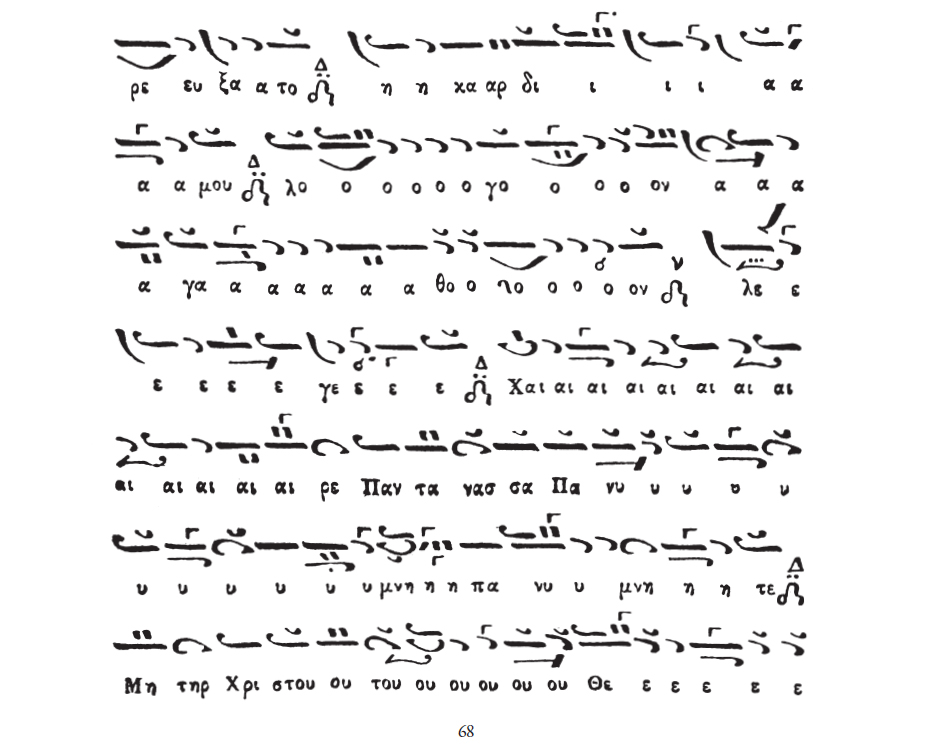 ρε ευ ξα α το Δ η η κα αρ δι ι ι ι α α
α α μου Δ λο ο ο ο ο ο γο ο ο ο ον α α α
α γα α α α α α α θο ο λο ο ο ο ον ν λε ε
ε ε ε ε γε ε ε ε Δ Χαι αι αι αι αι αι αι αι
αι αι αι αι αι ρε Παν τα νασ σα Πα νυ υ υ υ υ
υ υ υ υ υ υ μνη η η πα νυ υ μνη η η τε Δ
Μη τηρ Χρι στου ου του ου ου ου ου ου Θε ε ε ε ε ε
68